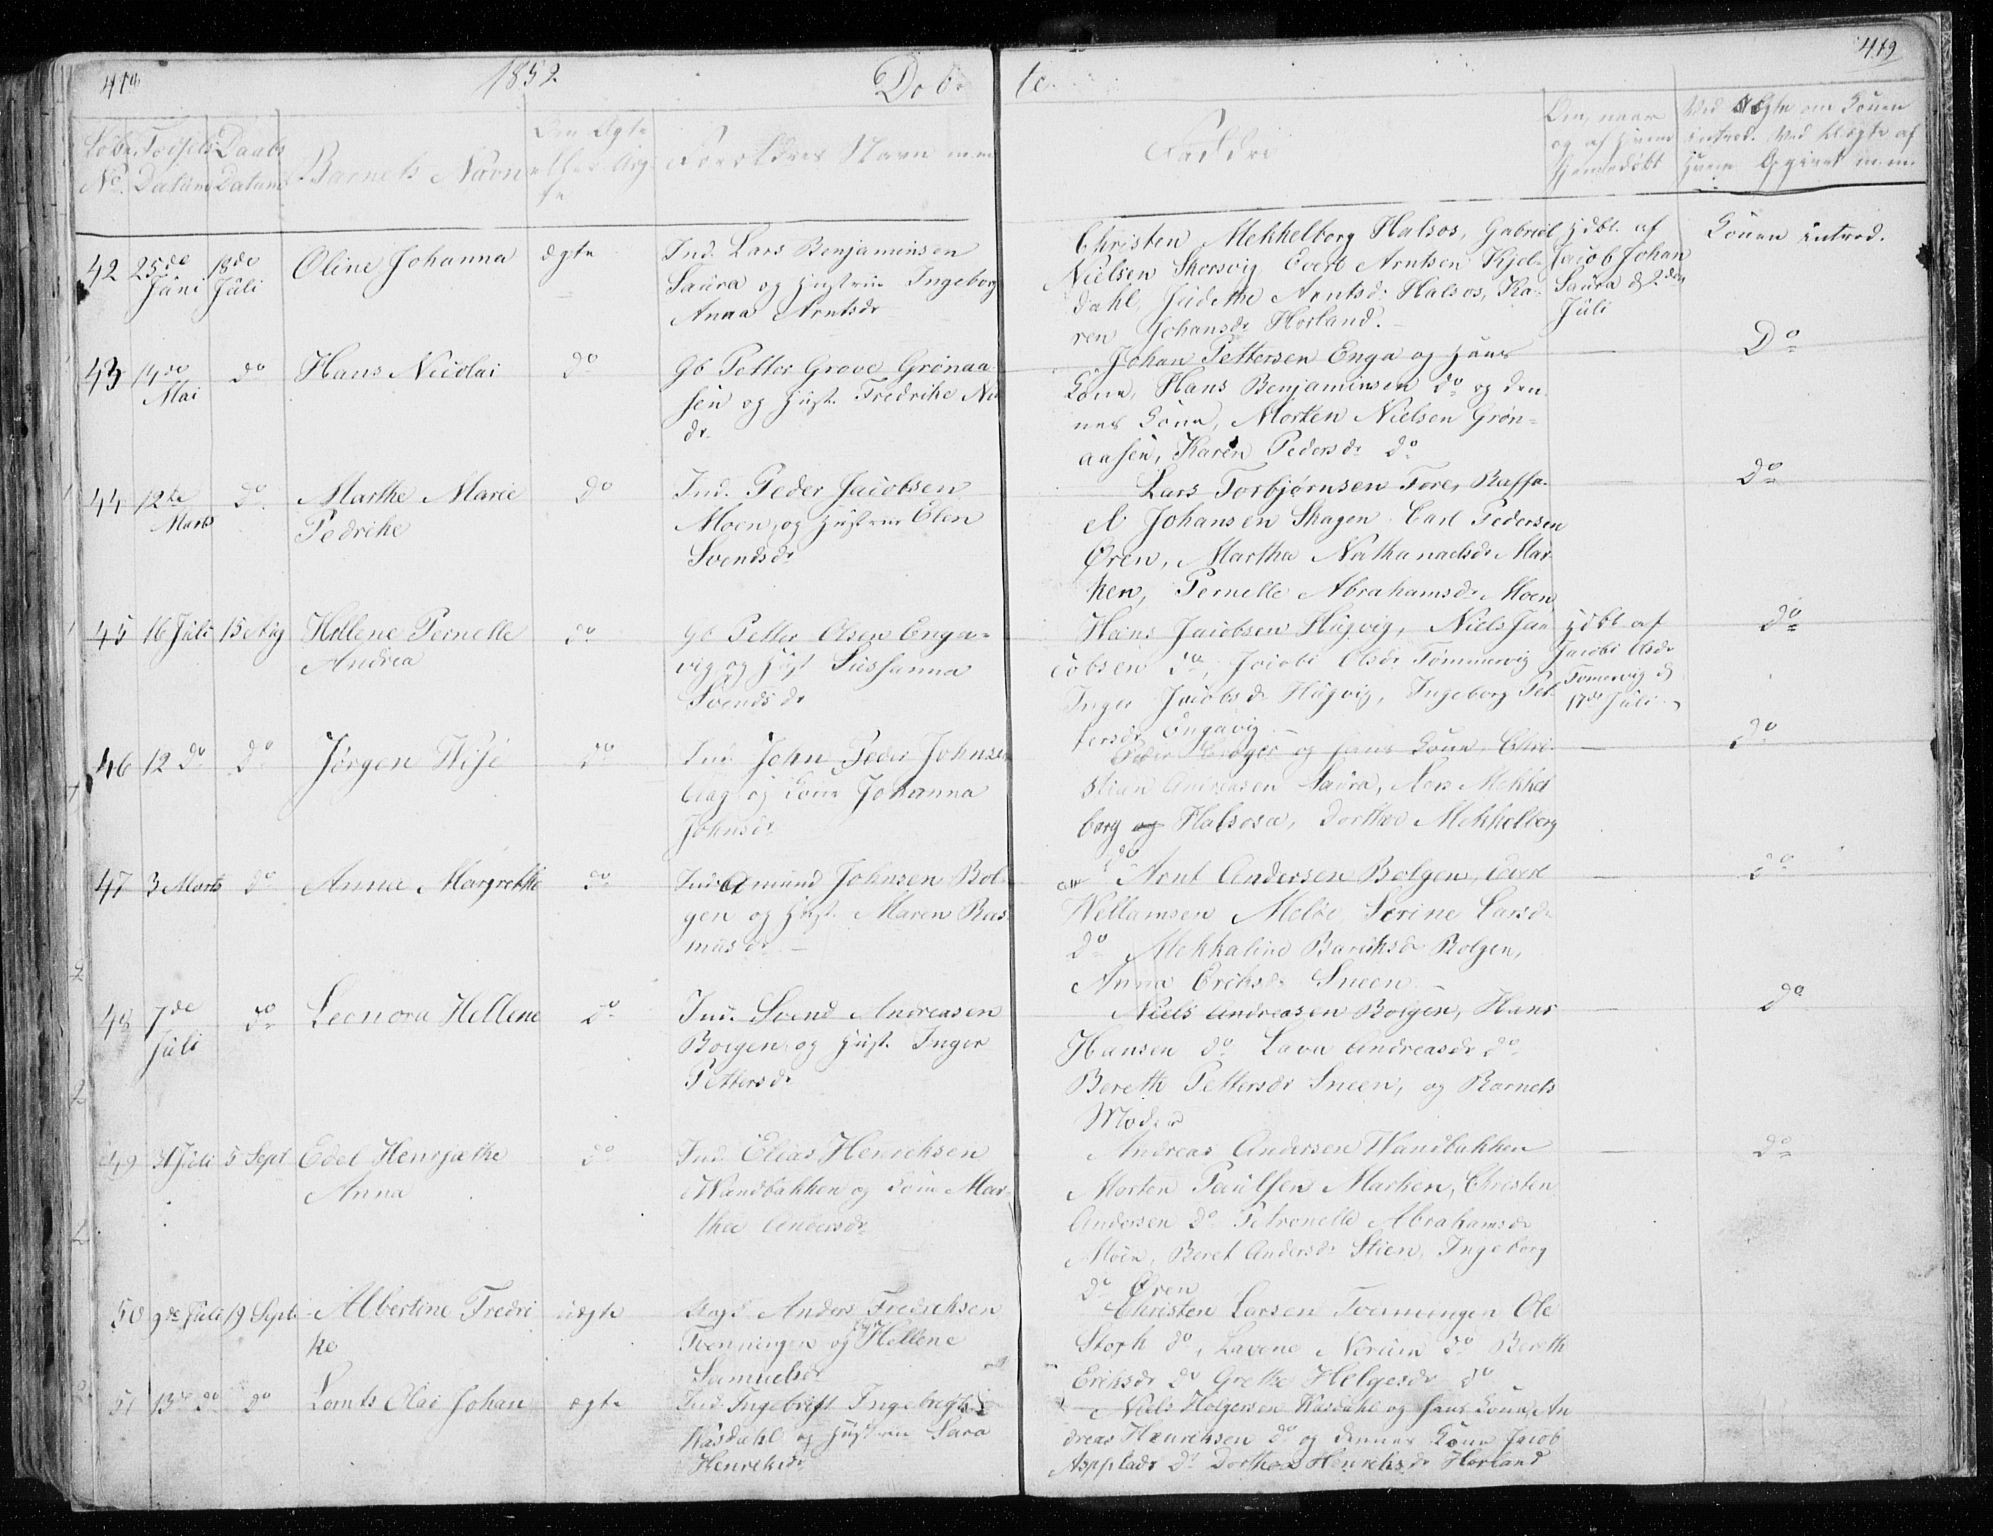 1852
Døb
te
419
Løbe No.
Fødsels Datum
Daabs Datum
Barnets Navn
Om Ægte eller Uægte
Forældres Navn m.m.
Faddre
Om, naar og af hvem hjemmedøbt
Ved Ægte om Konen introd. Ved Uægte af hvem Opgivet m.m.
42
25de Juni
18de Juli
Oline Johanna
ægte
Ind. Lars Benjaminsen
Saura og Hustrue Ingeborg
Anna Arntsdr
Christen Mekkelborg Halsos, Gabriel
Nielsen Skorsvig Evert Arntsen Kjel-
dahl, Judithe Arntsdr Halsos, Ka-
ren Johansdr Horland.
hjdbt. af
Jacob Johan
Saura d 2den
Juli
Konen introd.
43
14de Mai
do
Hans Nicolai
do
Gb Petter Grove Grønaa
sen og Hust. Fredrike Ni
dr
Johan Pettersen Enga og hans
Kone, Hans Benjaminsen do og den
nes Kone, Morten Nielsen Grøn-
aasen, Karen Pedersdr do
Do
44
12te Marts
do
Marthe Marie
Pedrike
do
Ind. Peder Jacobsen
Moen, og Hustrue Elen
Svendsdr
Lars Torbjørnsen Fore, Raffa-
el Johansen Skagen Carl Pedersen
Øren, Martha Nathanaelsdr Mar
ken, Pernelle Abrahamsdr Moen
Do
45
16 Juli
15 Aug
Hellene Pernelle
Andrea
do
Gb Petter Olsen Enga-
vig og Hust Sussanna
Svendsdr
Hans Jacobsen Hugvig, Niels Ja
cobsen do, Jacobi Olsdr Tømmervig
Inger Jacobsdr Hugvig, Ingeborg Pet-
tersdr Engavig
hjdbt af
Jacobi Olsdr
Tomervig d
17de Juli
do
46
12 do
do
Jørgen Wise
do
Ind. John Peder Johnsen
og Kone Johanna
Johnsdr
og hans Kone, Chri-
stian Andreasen Saura, Mekkel
borg og Halsosa, Dorthea Mekkelborg
do
do
47
3 Marts
do
Anna Margrethe
do
Ind Amund Johnsen Bol-
gen og Hust. Maren Ras
musdr
Arnt Andersen Bolgen, Evert
Wellamsen Meløe, Serine Larsdr
do Mekkaline Baruksdr Bolgen,
Anna Eriksdr Sneen
do
48
7de Juli
do
Leonora Hellene
do
Ind. Svend Andreasen
Bolgen og Hust. Inger
Pettersdr
Niels Andreasen Bolgen, Hans
Hansen do Lava Andreasdr do
Bereth Pettersdr Sneen, og Barnets
Moder
do
49
31 Juli
5 Sept
Edel Henrjethe
Anna
do
Ind. Elias Henriksen
Wandbakken og Kone Mar-
thea Andersdr
Andreas Andersen Wandbakken
Morten Paulsen Marken, Christen
Andersen do Petronelle Abrahamsdr
Moen, Beret Andersdr Stien, Ingeborg
do Øren
do
50
9de Juli
19 Sept.
Albertine Fredri
ke
uægte
Anders Fredriksen
Tvenningen og Hellene
Samuelsdr
Christen Larsen Tvenningen Ole
Storh do, Lavene Norum do Bereth
Eriksdr do Grethe Helgesdr do
51
13de do
do
Lornts Olai Johan
ægte
Ind. Ingebrigt Ingebrigts
Kasdahl og Hustrue Sara
Henriksdr
Niels Holgersen Kasdahl og hans Kone, An
dreas Henriksen do og dennes Kone Jacob
do Dorthea Henriksdr Horland